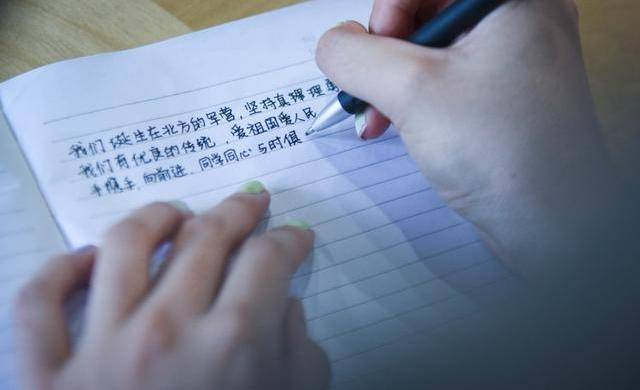 我们诞生在北方的军营,坚持真理
我们有优良的传统,爱祖国爱人民
手携手、向前进、同学同心、与时俱